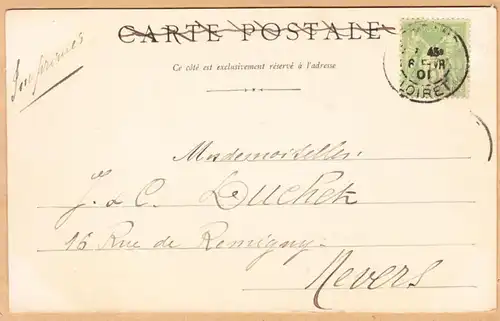 CARTE POSTALE
Ce côté est exclusivement réservé à l'adresse
Imprimés
6 FEVR
01
LOIRET
Mesdemoiselles
J. & C. Duchet
16 Rue de Remigny
Nevers